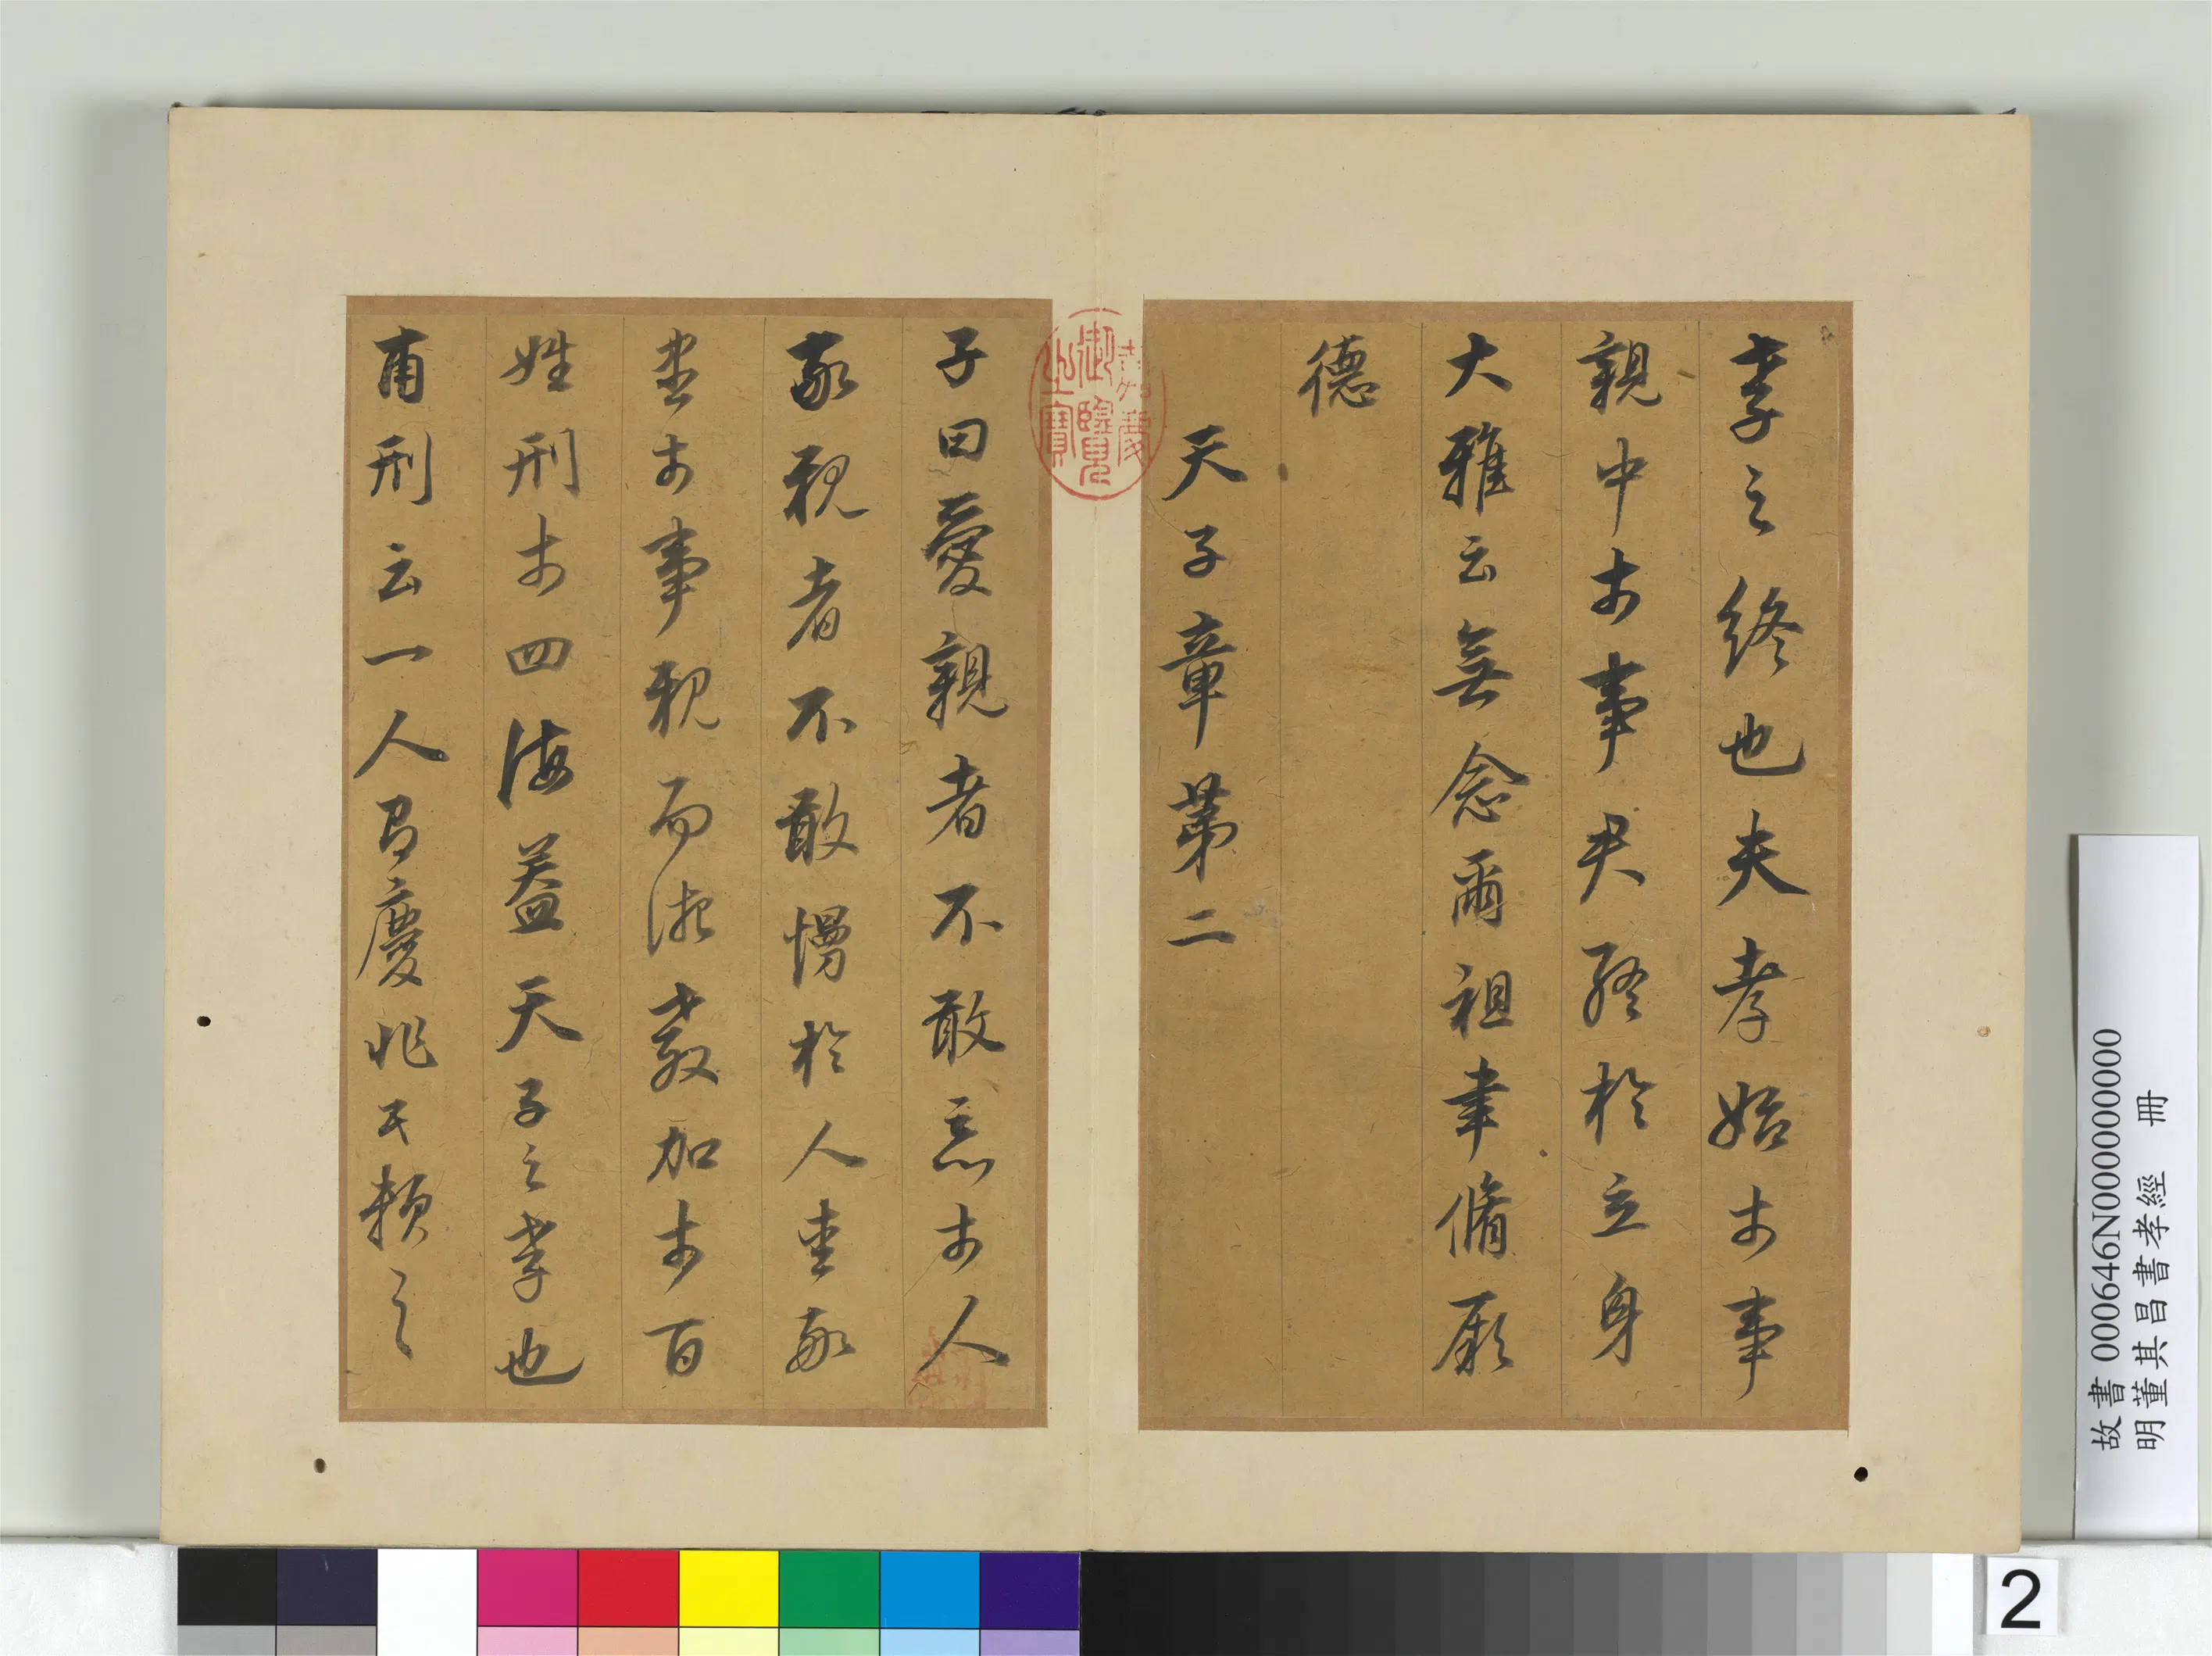 孝之終也夫孝始于事
親中于事君終於立身
大雅云無念爾祖聿脩厥
德
天子章第二
子曰愛親者不敢惡于人
敬親者不敢慢於人愛敬
盡于事親而德教加于百
姓刑于四海蓋天子之孝也
甫刑云一人有慶兆民賴之
嘉慶
御覽
之寶
故書 000646N000000000
明董其昌書孝經 冊
2